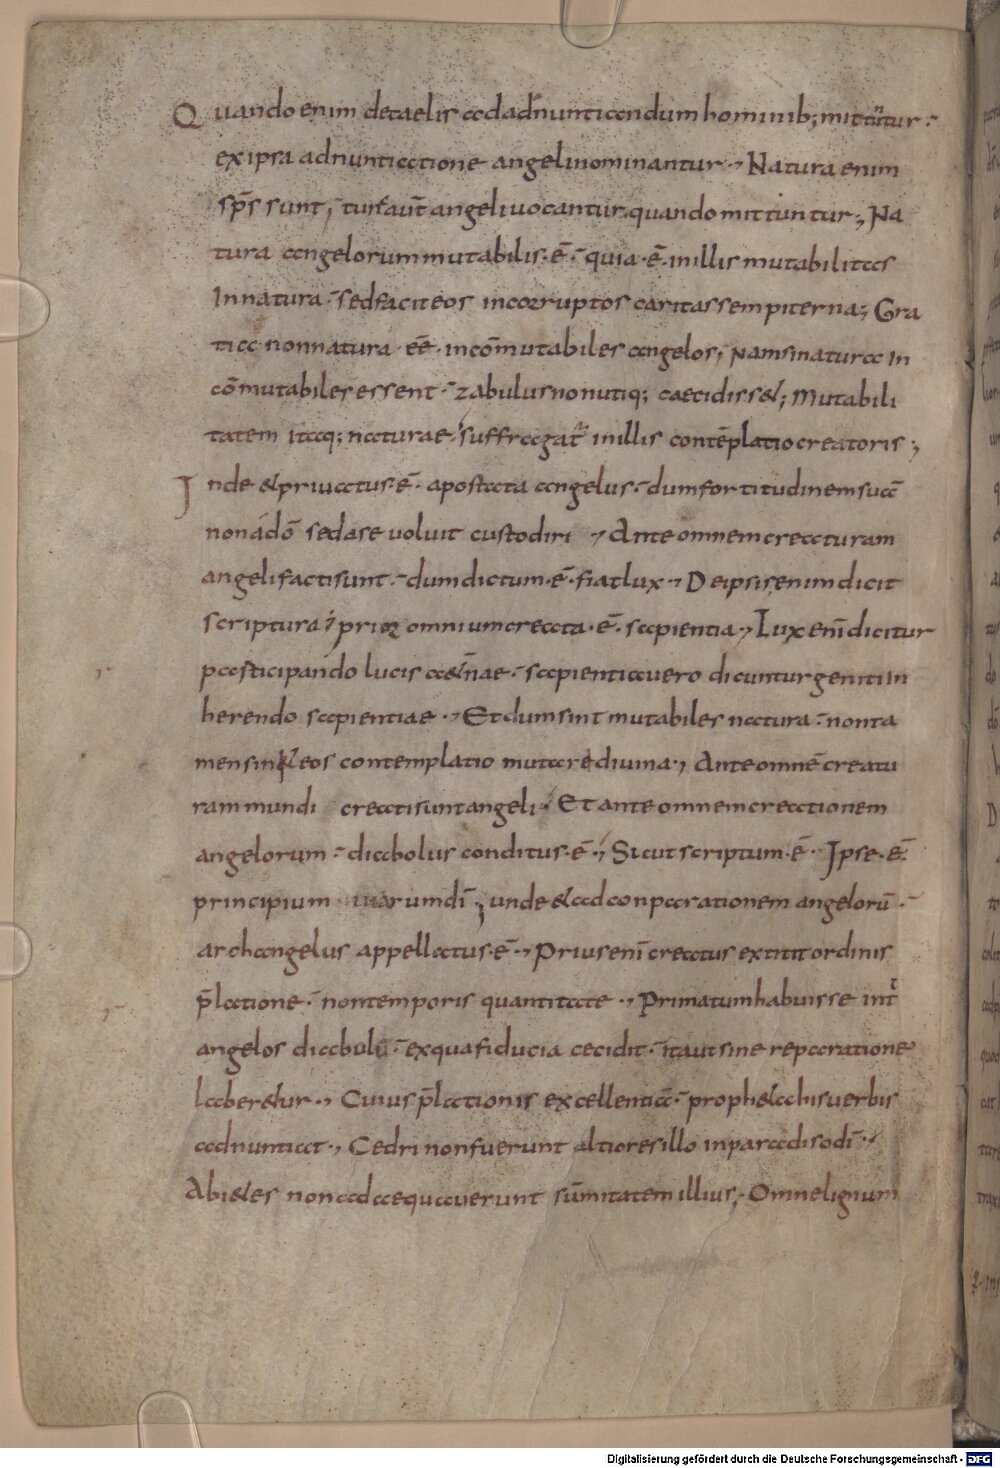 Quando enim de caelis ad adnuntiandum hominib; mittuntur ·
ex ipsa adnuntiatione angeli nominantur · Natura enim
sp̄s sunt; tunc aut̄ angeli uocantur quando mittuntur; Na
tura angelorum mutabilis · ē · quia · ē · in illis mutabilitas
In natura · sed facit eos incorruptos caritas sempiterna; Gra
tia non natura · ēē · incōmutabiles angelos; Nam si natura in
cōmutabiles essent · zabulus non utiq; caecidiss&; Mutabili
tatem itaq; naturae suffragat᷒ in illis contēplatio creatoris;
Inde & priuatus · ē · apostata angelus · dum fortitudinem suā
non a dō sed a se uoluit custodiri · Ante omnem creaturam
angeli facti sunt · dum dictum · ē · fiat lux · De ipsis enim dicit
scriptura prior omnium creata · ē · sapientia · Lux enī dicitur
participando lucis a&̄nae · sapientia uero dicuntur geniti in
herendo sapientiae · Et dum sint mutabiles natura · non ta
men sin& eos contemplatio mutare diuina · Ante omnē creatu
ram mundi creati sunt angeli · Et ante omnem creationem
angelorum · diabolus conditus · ē · Sicut scriptum · ē · Ipse · ē ·
principium uiarum dī; unde & ad conparationem angelorū ·
archangelus appellatus · ē · Prius enī creatus extitit ordinis
p̄latione · non temporis quantitate · Primatum habuisse int̄
angelos diabolū · ex qua fiducia cecidit · ita ut sine reparatione
laber&ur · Cuius p̄lationis excellentiā · proph&a his uerbis
adnuntiat · Cedri non fuerunt altiores illo in paradiso dī ·
Abi&es non adaequauerunt sūmitatem illius; Omne lignum
Digitalisierung gefördert durch die Deutsche Forschungsgemeinschaft - DFG